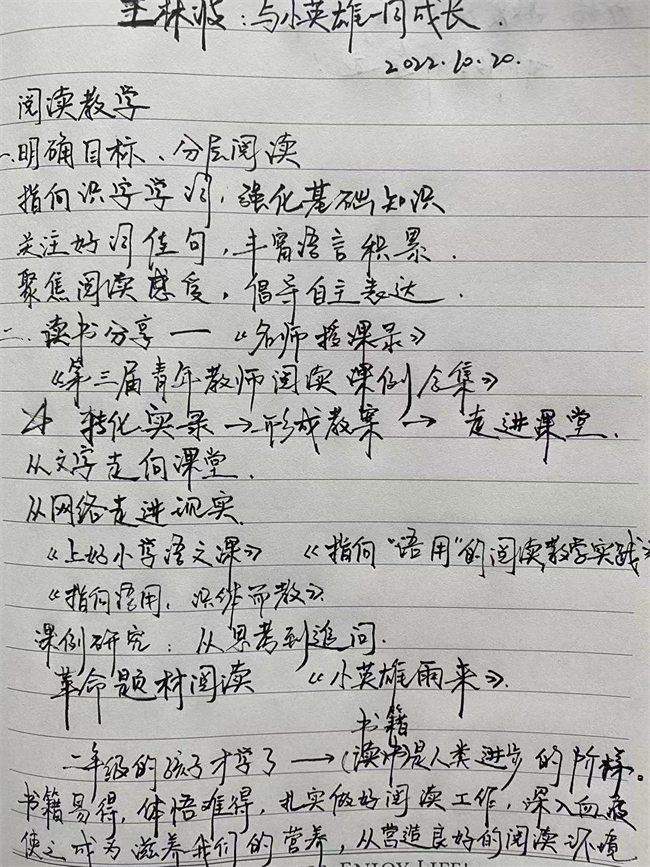 王林波：与小英雄一同成长.
2022.10.20.
阅读教学
一.明确目标、分层阅读
指向识字学词，强化基础知识
关注好词佳句，丰富语言积累.
聚焦阅读感受，倡导自主表达.
二.读书分享—《名师授课录》
《第三届青年教师阅读课例全集》
☆ 转化实录→形成教案→走进课堂.
从文字走向课堂.
从网络走进现实.
《上好小学语文课》 《指向“语用”的阅读教学实践》
《指向语用，识体而教》
课例研究：从思考到追问.
革命题材阅读 《小英雄雨来》.
书籍
二年级的孩子才学了→(读书)是人类进步的阶梯。
书籍易得，体悟难得，扎实做好阅读工作，深入血液
使之成为滋养我们的营养，从营造良好的阅读环境
ENJOY LIFE!